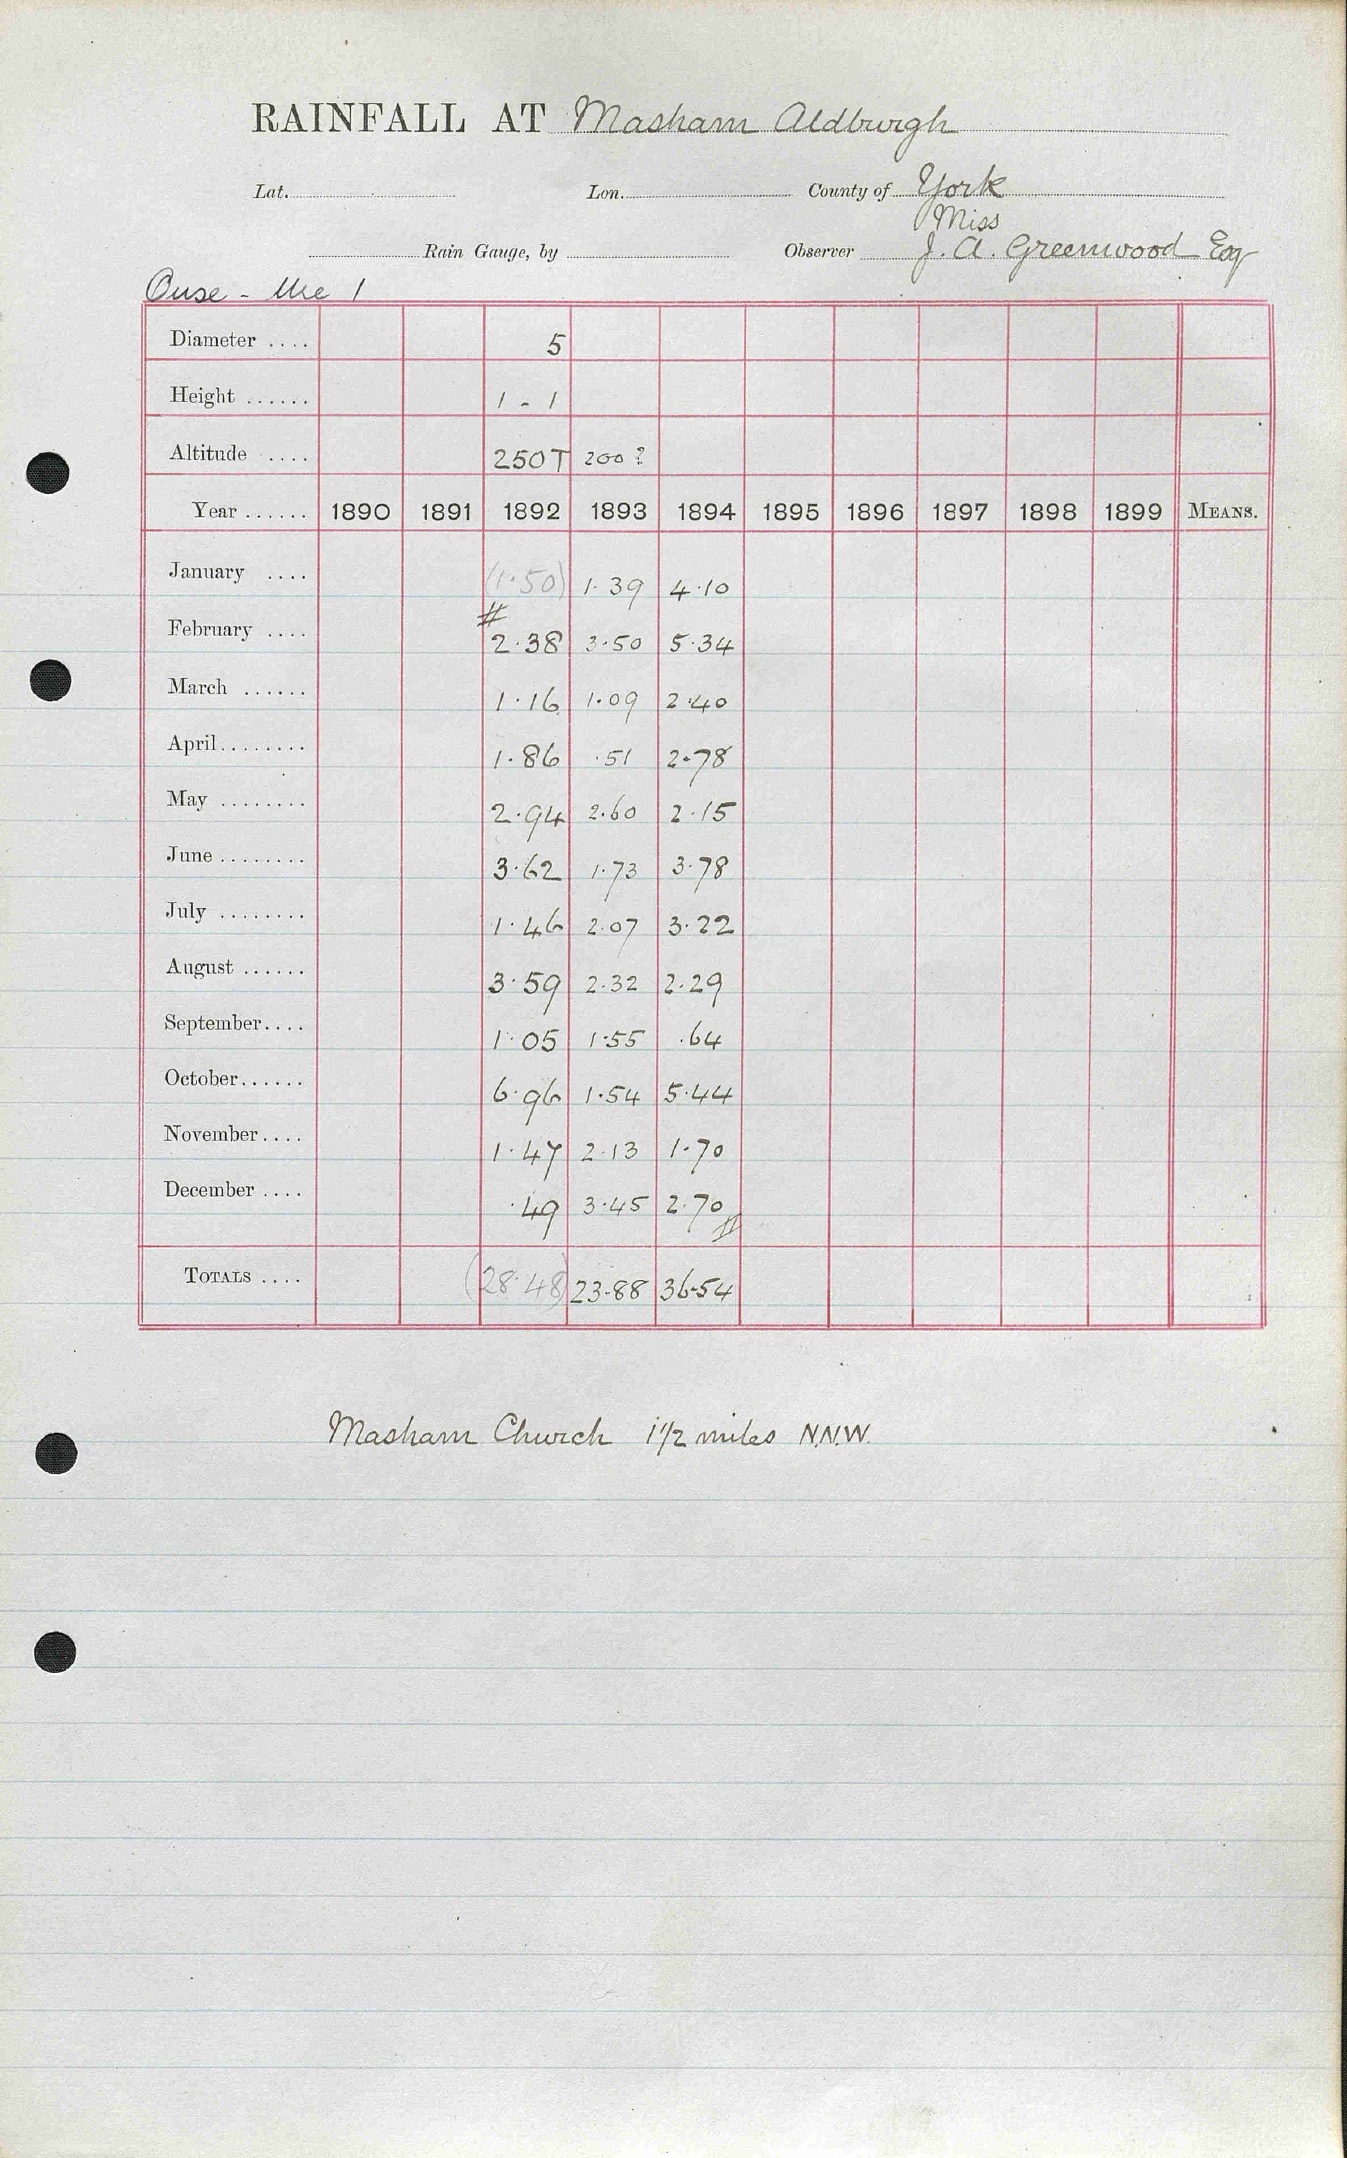 RAINFALL AT Masham Aldburgh
Lat. Lon. County of York
Miss
Rain Gauge, by Observer J. A. Greenwood Esq
Ouse - Ure 1
Diameter .... 5
Height ...... 1 - 1
Altitude .... 250T 200?
Year ...... 1890 1891 1892 1893 1894 1895 1896 1897 1898 1899 MEANS.
January .... (1.50) 1.39 4.10
#
February .... 2.38 3.50 5.34
March ...... 1.16 1.09 2.40
April ........ 1.86 .51 2.78
May ........ 2.94 2.60 2.15
June ........ 3.62 1.73 3.78
July ........ 1.46 2.07 3.22
August ...... 3.59 2.32 2.29
September .... 1.05 1.55 .64
October ...... 6.96 1.54 5.44
November .... 1.47 2.13 1.70
December .... .49 3.45 2.70
#
TOTALS .... (28.48) 23.88 36.54
Masham Church 1½ miles N.N.W.